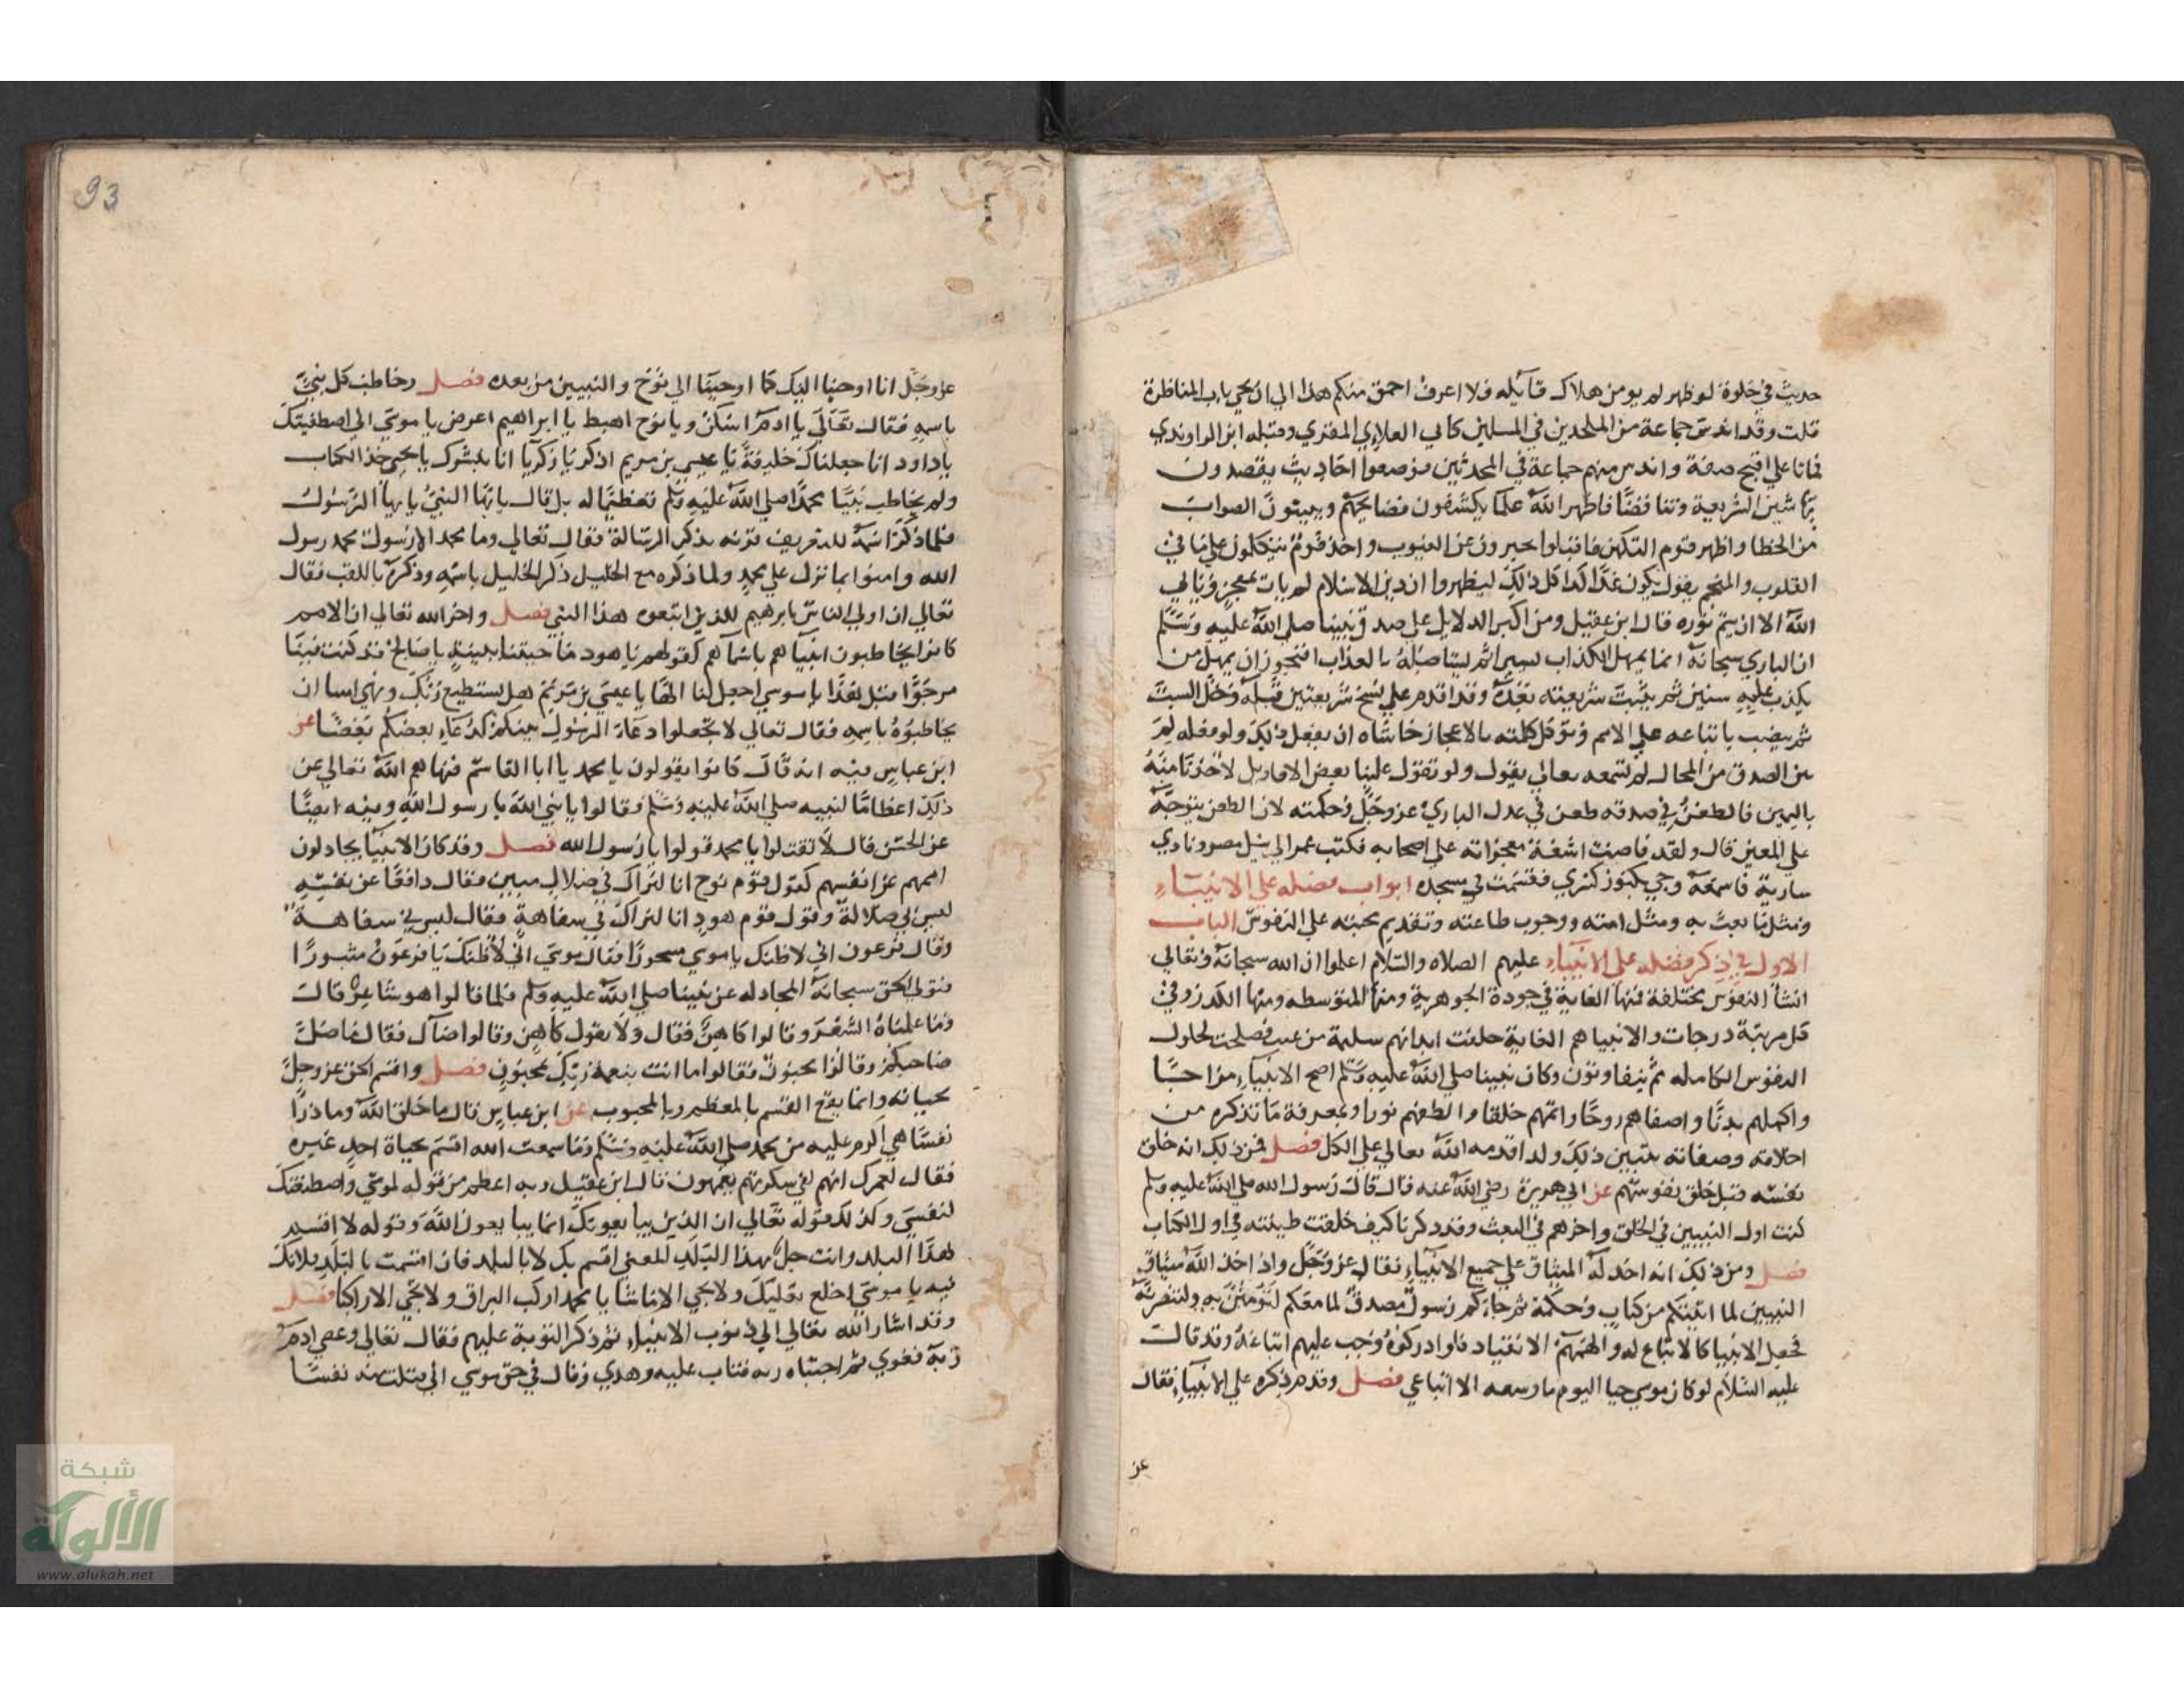 حديث في خلوة لو ظهر لم يومن هلاك قائله فلا اعرف احمق منكم هذا الي ان يجي باب المناظرة
قلت وقد اندس جماعة من الملحدين في المسلمين كابي العلاء المعري وقبله ابن الراوندي
فماتا علي اقبح صفة واندس منهم جماعة في المحدثين فوضعوا احاديث يقصدون
بها شين الشريعة وتناقضا فاظهر الله علما يكشفون فضايحهم ويبينون الصواب
من الخطا واظهر قوم التكهن فاقبلوا يخبرون عن الغيوب واخذ قوم يتكلون علي ما في
القلوب والمنجم يقول يكون غدا كذا كل ذلك ليظهروا ان دين الاسلام لم يات بمعجز ويابي
الله الا ان يتم نوره قال ابن عقيل ومن اكبر الدلايل علي صدق نبينا صلي الله عليه وسلم
ان الباري سبحانه انما يمهل الكذاب يسيرا ثم يستاصله بالعذاب افتجوز ان يمهل من
يكذب عليه سنين ثم يثبت شريعته بعده وقد اقدم علي نسخ شريعتين قبله وحل السبت
ثم يضب باتباعه علي الامم وتوكل كلمته بالاعجاز حاشاه ان يفعل ذلك ولو فعله لم
يبن الصدق من المحال لم تسمعه تعالي يقول ولو تقول علينا بعض الاقاويل لاخذنا منه
باليمين فالطعن في صدقه طعن في عدل الباري عز وجل وحكمته لان الطعن يتوجه
علي المعين قال ولقد فاضت اشعة معجزاته علي اصحابه فكتب عمر الي نيل مصر ونادي
سارية فاسمعه وجي بكنوز كسري فقسمت في مسجده ابواب فضله علي الانبياء
ومثل ما بعث به ومثل امته ووجوب طاعته وتقديم محبته علي النفوس الباب
الاول في ذكر فضله علي الانبياء عليهم الصلاه والسلام اعلموا ان الله سبحانه وتعالي
انشا النفوس مختلفة فمنها الغاية في جودة الجوهرية ومنها المتوسطه ومنها الكدر وفي
كل مرتبة درجات والانبيا هم الغاية خلقت ابدانهم سليمة من عيب فصلحت لحلول
النفوس الكامله ثم يتفاوتون وكان نبينا صلي الله عليه وسلم اصح الانبياء مزاجا
واكملهم بدنا واصفاهم روحا واتمهم خلقا والطفهم نورا وبمعرفة ما نذكره من
اخلاقه وصفاته يتبين ذلك ولذا قدمه الله تعالي علي الكل فصل فمن ذلك انه خلق
نفسه قبل خلق نفوسهم عن ابي هريرة رضي الله عنه قال قال رسول الله صلي الله عليه وسلم
كنت اول النبيين في الخلق واخرهم في البعث وقد ذكرنا كيف خلقت طينته في اول الكتاب
فصل ومن ذلك انه اخذ له الميثاق علي جميع الانبياء فقال عز وجل واذ اخذ الله ميثاق
النبيين لما اتيتكم من كتاب وحكمة ثم جاءكم رسول مصدق لما معكم لتؤمنن به ولتنصرنه
فجعل الانبيا كالاتباع له والهمهم الانقياد فلو ادركوه وجب عليهم اتباعه وقد قالت
عليه السلام لو كان موسي حيا اليوم ما وسعه الا اتباعي فصل وقدم ذكره علي الانبياء فقال
عز
93
عز وجل انا اوحينا اليك كما اوحينا الي نوح والنبيين من بعده فصل وخاطب كل نبي
باسمه فقال تعالي يا ادم اسكن ويا نوح اهبط يا ابراهيم اعرض يا موسي اني اصطفيتك
يا داود انا جعلناك خليفة يا عيسي بن مريم اذكر يا زكريا انا نبشرك يا يحيي خذ الكتاب
ولم يخاطب نبينا محمدا صلي الله عليه وسلم تعظيما له بل قال يا ايها النبي يا ايها الرسول
فلما ذكر اسمه للتعريف قرنه بذكر الرسالة فقال تعالي وما محمد الا رسول محمد رسول
الله وامنوا بما نزل علي محمد ولما ذكره مع الخليل ذكر الخليل باسمه وذكره باللقب فقال
تعالي ان اولي الناس بابرهيم للذين اتبعوه هذا النبي فصل واخبر الله تعالي ان الامم
كانوا يخاطبون انبياهم باسماهم كقولهم يا هود ما جيتنا ببينة يا صالح قد كنت فينا
مرجوا قبل هذا يا موسي اجعل لنا الها يا عيسي بن مريم هل يستطيع ربك ونهي امتنا ان
يخاطبوه باسمه فقال تعالي لا تجعلوا دعاء الرسول بينكم كدعاء بعضكم بعضا عن
ابن عباس فيه انه قال كانوا يقولون يا محمد يا ابا القاسم فنهاهم الله تعالي عن
ذلك اعظاما لنبيه صلي الله عليه وسلم وقالوا يا نبي الله يا رسول الله وفيه ايضا
عن الحسن قال لا تقولوا يا محمد قولوا يا رسول الله فصل وقد كان الانبيا يجادلون
اممهم عن انفسهم كقول قوم نوح انا لنراك في ضلال مبين فقال دافعا عن نفسه
ليس بي ضلالة وقول قوم هود انا لنراك في سفاهة فقال ليس بي سفاهة
وقال فرعون اني لاظنك يا موسي مسحورا فقال موسي اني لاظنك يا فرعون مثبورا
فتولي الحق سبحانه المجادله عن نبينا صلي الله عليه وسلم فلما قالوا هو شاعر قال
وما علمناه الشعر وقالوا كاهن فقال ولا بقول كاهن وقالوا ضال فقال ما ضل
صاحبكم وقالوا مجنون فقالوا ما انت بنعمة ربك بمجنون فصل واقسم الحق عز وجل
بحياته وانما يقع القسم بالمعظم وبالمحبوب عن ابن عباس قال ما خلق الله وما ذرا
نفسا هي اكرم عليه من محمد صلي الله عليه وسلم وما سمعت الله اقسم بحياة احد غيره
فقال لعمرك انهم لفي سكرتهم يعمهون قال ابن عقيل وبه اعظم من قوله لموسي واصطنعتك
لنفسي وكذلك قوله تعالي ان الذين يبايعونك انما يبايعون الله وقوله لا اقسم
بهذا البلد وانت حل بهذا البلد المعني اقسم بك لا بالبلد فان اقسمت بالبلد فلانك
فيه يا موسي اخلع نعليك ولا تجي الا ماشيا يا محمد اركب البراق ولا تجي الا راكبا فصل
وقد اشار الله تعالي الي ذنوب الانبياء ثم ذكر التوبة عليهم فقال تعالي وعصي ادم
ربه فغوي ثم اجتباه ربه فتاب عليه وهدي وقال في حق موسي اني قتلت منهم نفسا
شبكة
الألوكة
www.alukah.net